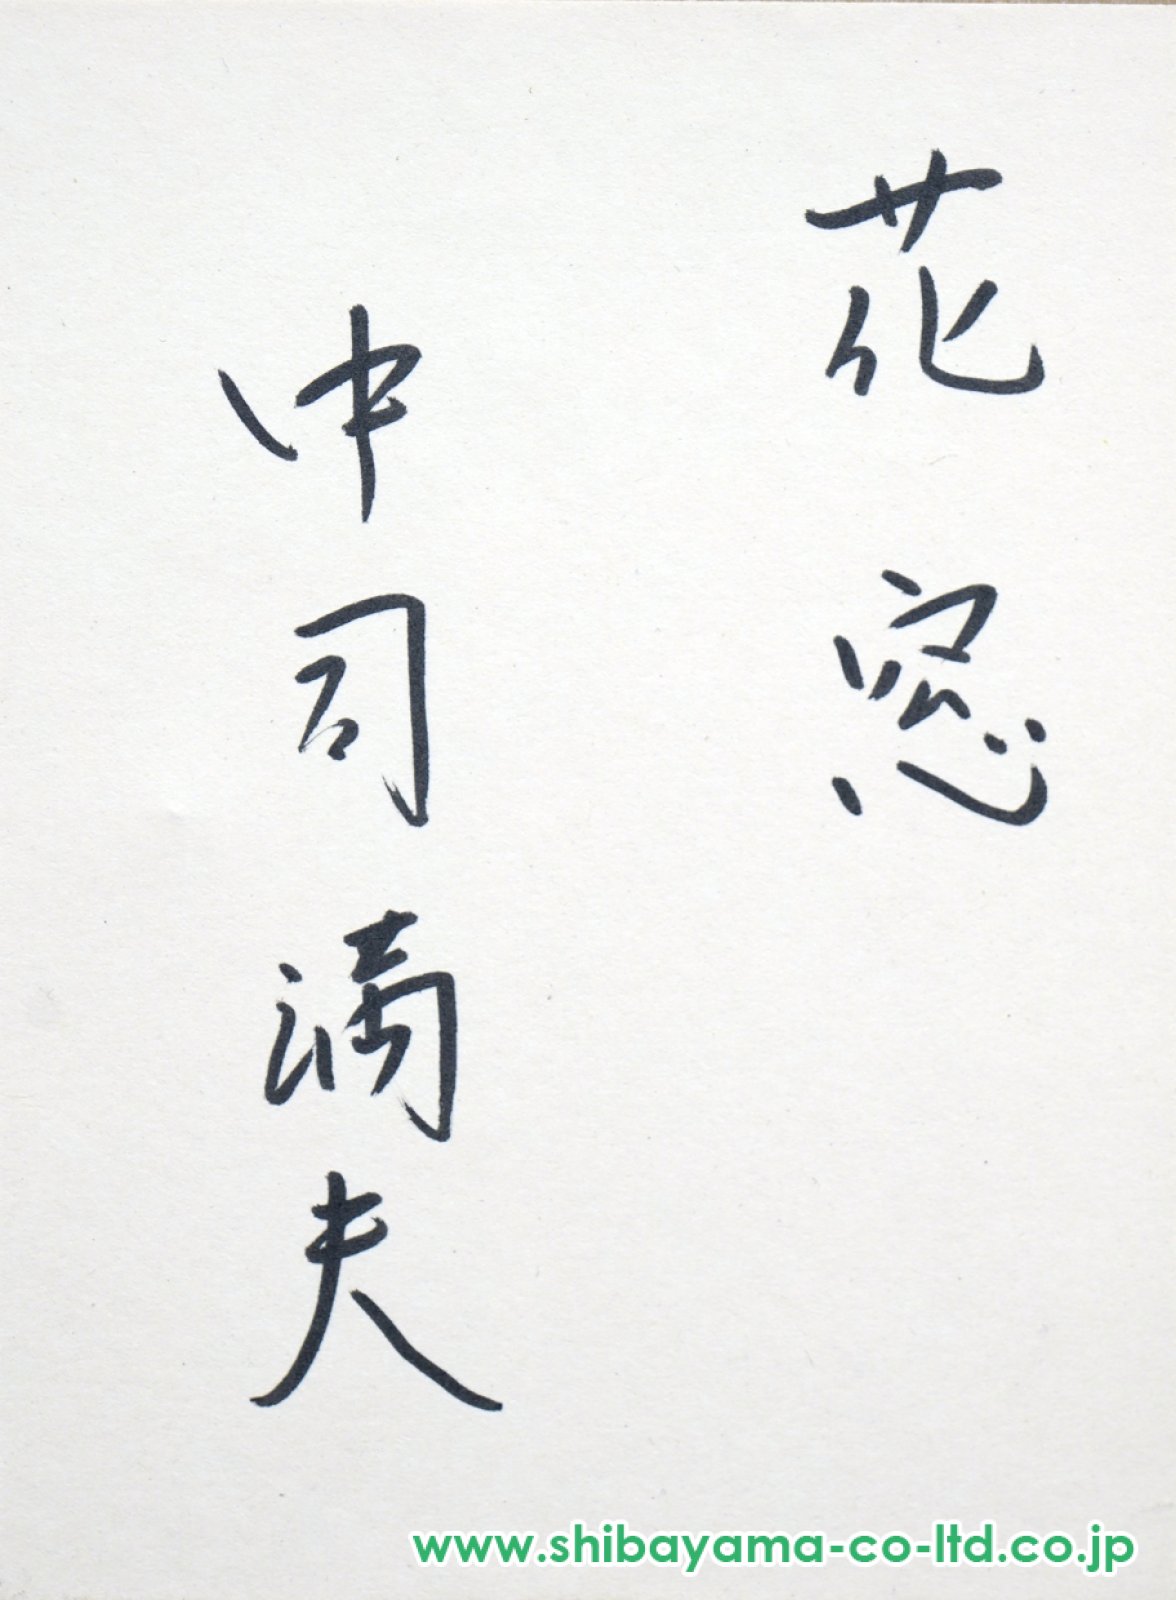 花窓
中司満夫
www.shibayama-co-ltd.co.jp